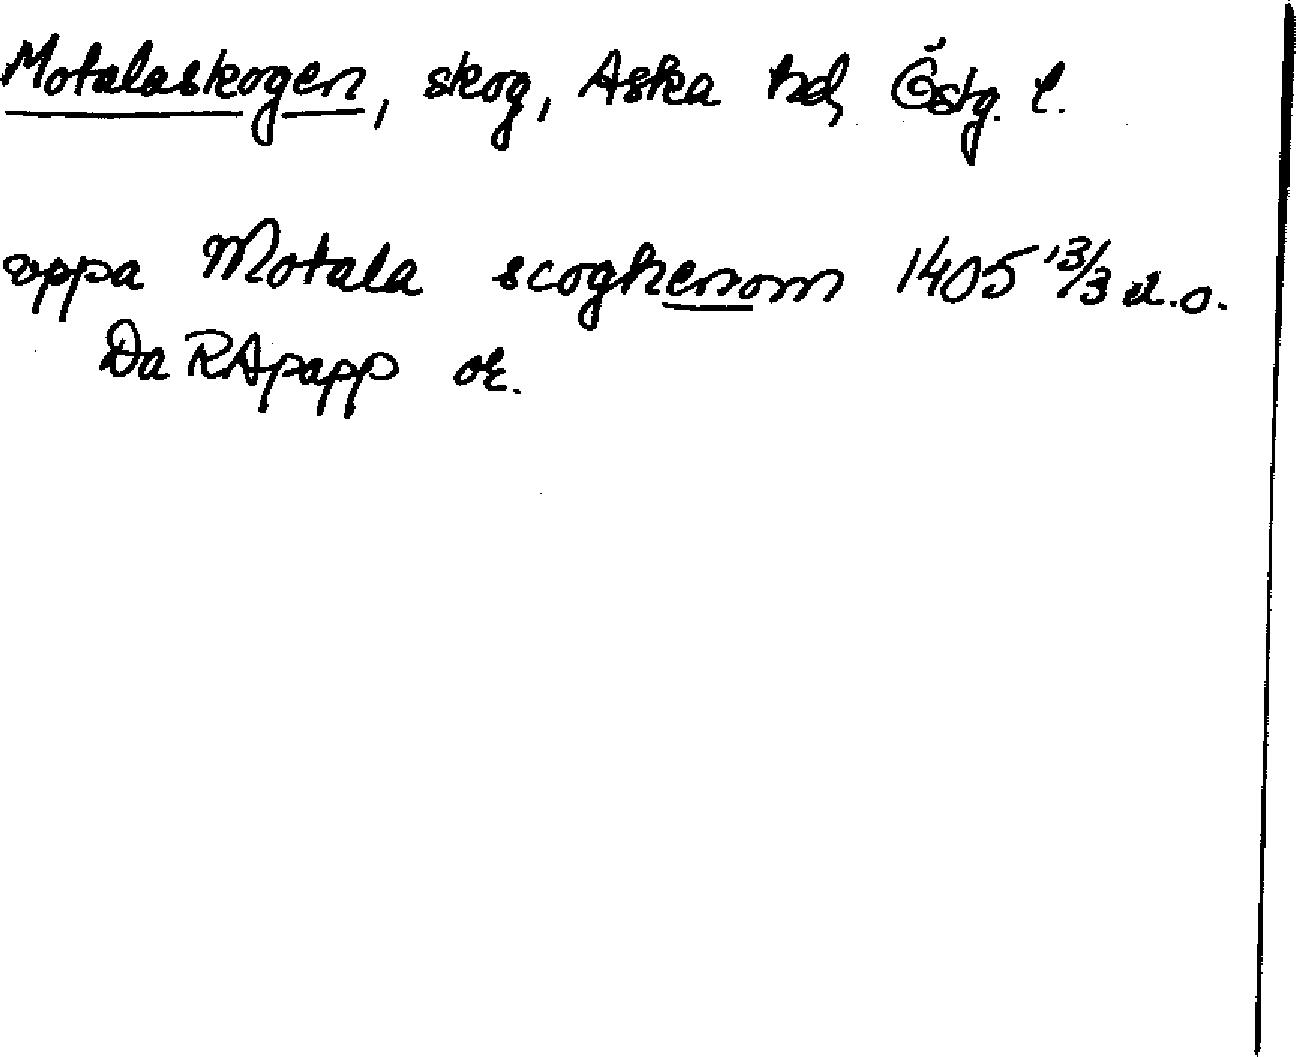 Motalaskogen, skog, Aska hd, Östg. l.
vppa Motala scoghenom 1405 13/3 u.o.
Da RApapp or.